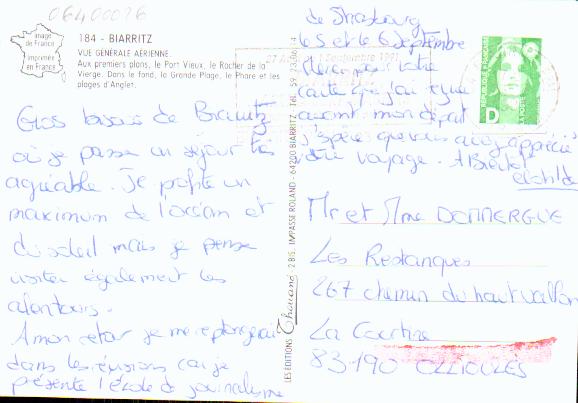 06400026
image
de France
imprimée
en France
184 - BIARRITZ
VUE GÉNÉRALE AÉRIENNE.
Aux premiers plans, le Port Vieux, le Rocher de la
Vierge. Dans le fond, la Grande Plage, le Phare et les
plages d'Anglet.
Gros bisous de Biarritz
où je passe un séjour très
agréable. Je profite un
maximum de l'océan et
du soleil mais je pense
visiter également les
alentours.
A mon retour je me replongerai
dans les révisions car je
présente l'école de journalisme
de Strasbourg
les 5 et le 6 septembre
Merci pour votre
carte que j'ai reçue
avant mon départ
J'espère que vous avez apprécié
votre voyage. A Bientôt
Clotilde
RÉPUBLIQUE FRANÇAISE
LA POSTE
D
LES ÉDITIONS Thouand 2 BIS, IMPASSE ROLAND - 64200 BIARRITZ - Tél. 59
Mr et Mme DONNERGUE
Les Restanques
267 chemin du haut vallon
La Courtine
83-190 OLLIOULES